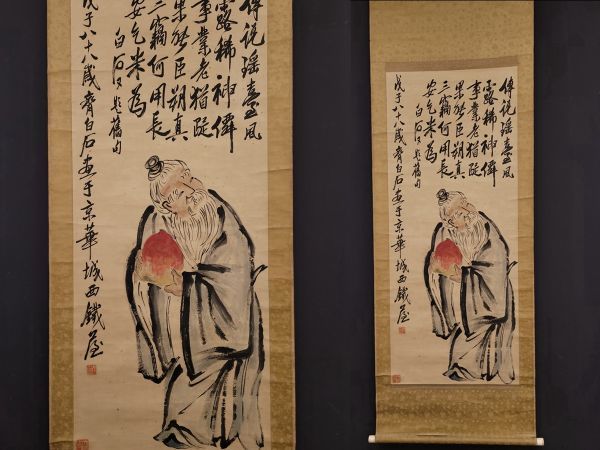 傳說瑤臺風
露稀神僊
事業老猶疑
果能臣朔真
三竊何用長
安乞米為
白石又題舊句
戊子八十八歲齊白石畫于京華城西鐵屋
傳說瑤臺風
露稀神僊
事業老猶疑
果能臣朔真
三竊何用長
安乞米為
白石又題舊句
戊子八十八歲齊白石畫于京華城西鐵屋